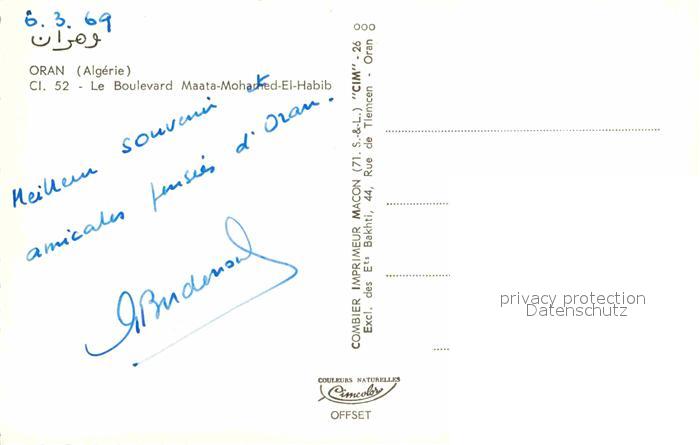 6.3.69
وهران
ORAN (Algérie)
Cl. 52 - Le Boulevard Maata-Mohamed-El-Habib
Meilleur souvenir et
amicales pensées d'Oran.
COMBIER IMPRIMEUR MACON (71. S.-&-L.) "CIM" - 26
Excl. des Ets Bakhti, 44, Rue de Tlemcen - Oran
privacy protection
Datenschutz
COULEURS NATURELLES
Cimcolor
OFFSET